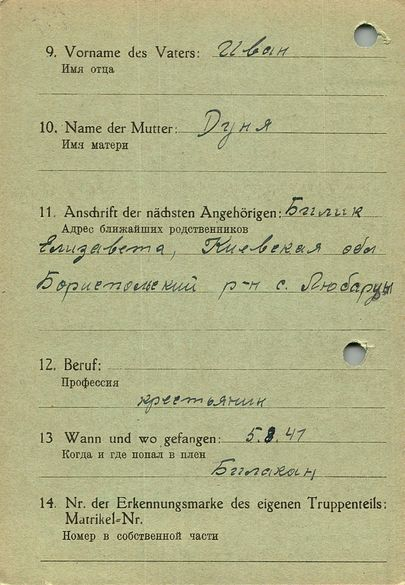 9. Vorname des Vaters: Иван
Имя отца
10. Name der Mutter: Дуня
Имя матери
11. Anschrift der nächsten Angehörigen: Билик
Адрес ближайших родственников
Елизавета, Киевская обл
Бориспольский р-н с. Любарцы
12. Beruf:
Профессия
крестьянин
13 Wann und wo gefangen: 5.8.41
Когда и где попал в плен
14. Nr. der Erkennungsmarke des eigenen Truppenteils:
Matrikel-Nr.
Номер в собственной части